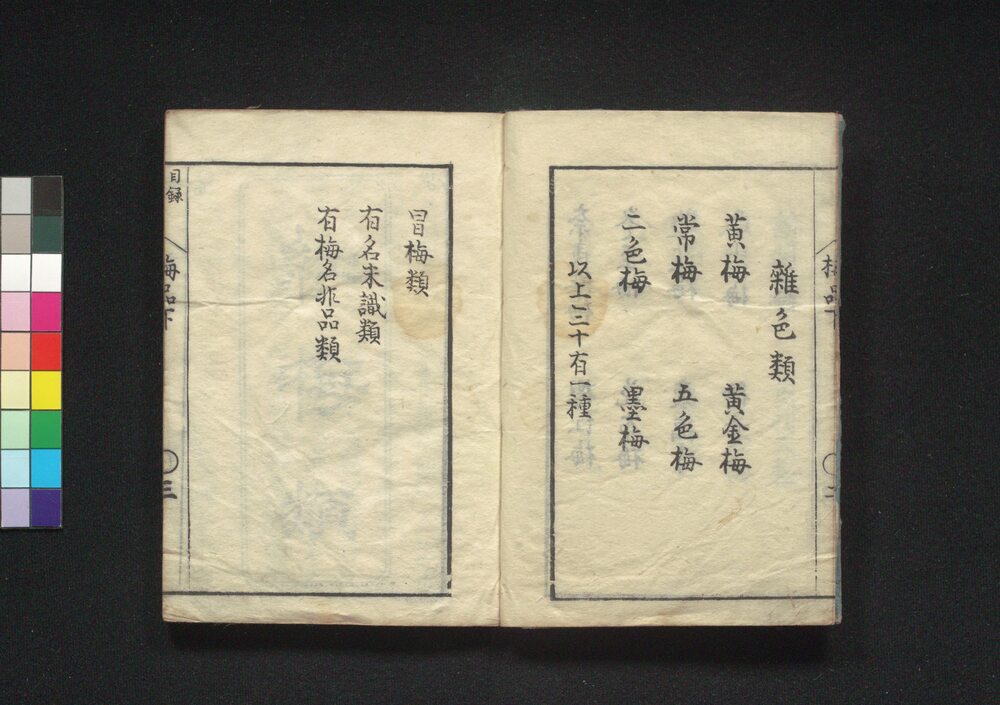 雜色類
黄梅 黄金梅
常梅 五色梅
二色梅 墨梅
以上三十有一種
梅品下
二
冒梅類
有名未識類
有梅名非品類
目録
梅品下
三